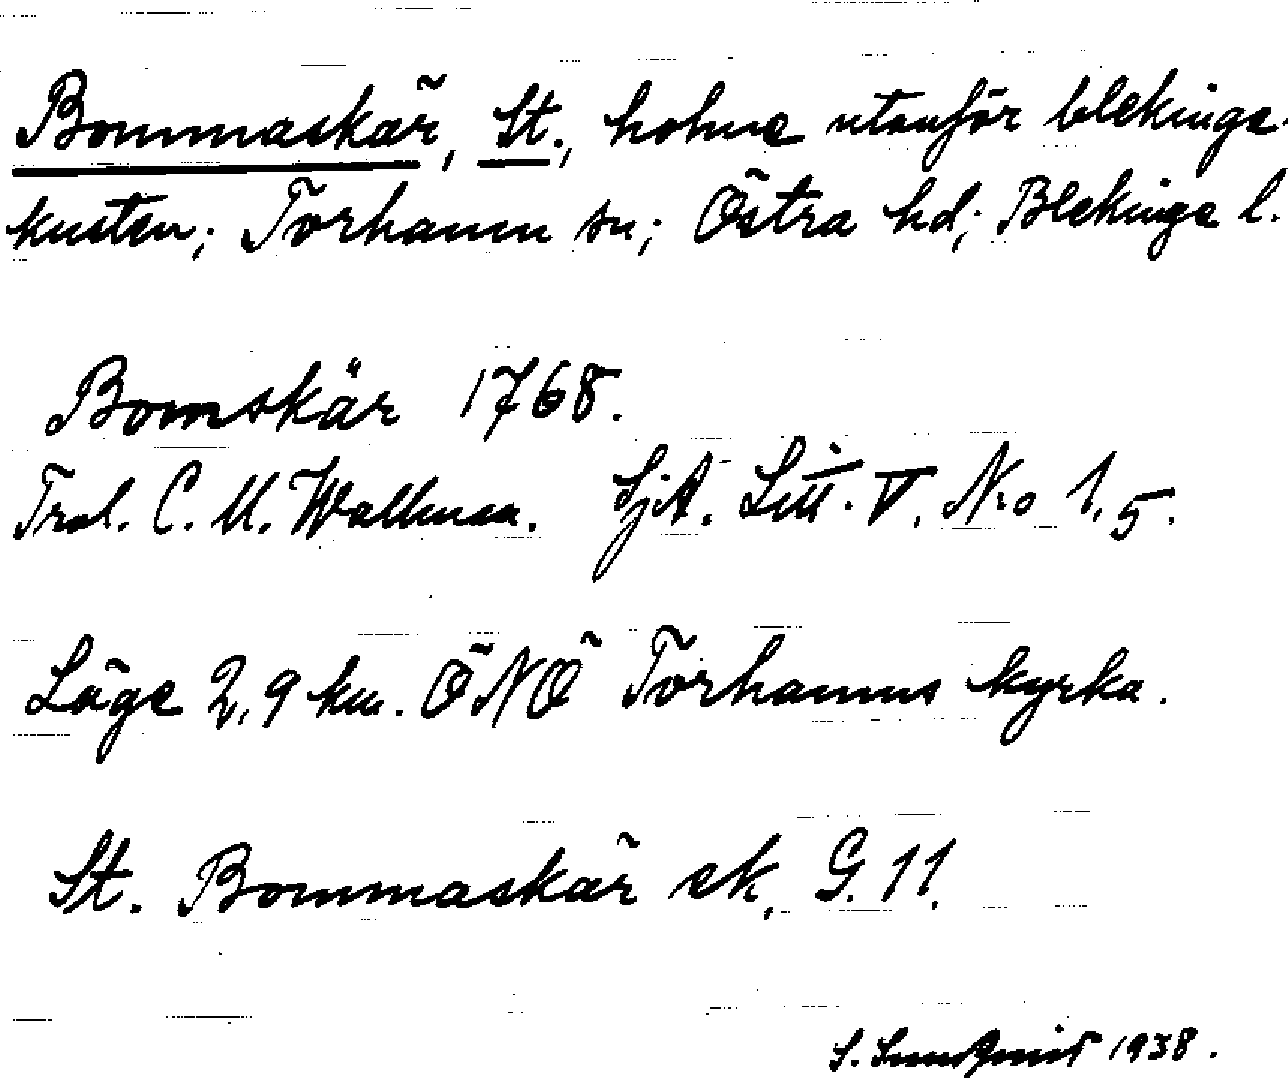 Bommaskär, St., holme utanför blekinge-
kusten; Torhamn sn; Östra hd; Blekinge l.
Bomskär 1768.
Trol. C. U. Wallman. SjA. Litt. V. No 1,5.
Läge 2,9 km. ÖNÖ Torhamns kyrka.
St. Bommaskär ek, G. 11.
S. Sundqvist 1938.